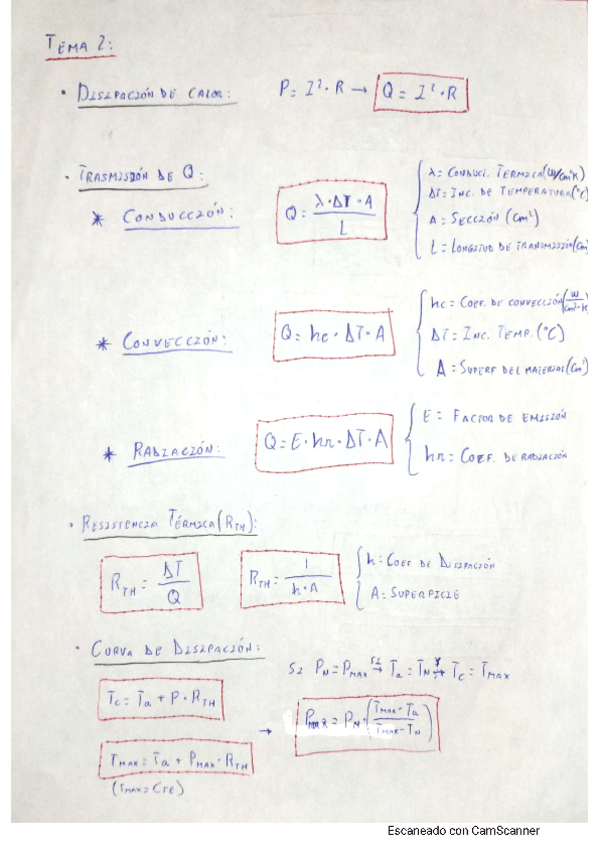 TEMA 2:
• DISIPACIÓN DE CALOR: P = I²·R → Q = I²·R
• TRASMISIÓN DE Q:
* CONDUCCIÓN: Q = λ·ΔT·A / L
λ = CONDUCT. TERMICA (W/cm²K)
ΔT: INC. DE TEMPERATURA (°C)
A = SECCIÓN (cm²)
L = LONGITUD DE TRANSMISIÓN (cm
* CONVECCIÓN: Q = hc·ΔT·A
hc = COEF. DE CONVECCIÓN (W/cm²·K
ΔT = INC. TEMP. (°C)
A = SUPERF DEL MATERIAL (cm²)
* RADIACIÓN: Q = E·hr·ΔT·A
E = FACTOR DE EMISIÓN
hr = COEF. DE RADIACIÓN
• RESISTENCIA TÉRMICA (RTH):
RTH = ΔT / Q RTH = 1 / h·A
h = COEF DE DISIPACIÓN
A = SUPERFICIE
• CURVA DE DISIPACIÓN:
SI PN = PMAX SI→ Ta = TN Y→ TC = TMAX
TC = Ta + P·RTH
→ PMAX = PN·(TMAX-Ta / TMAX-TN)
TMAX = Ta + PMAX·RTH
(TMAX = CTE)
Escaneado con CamScanner